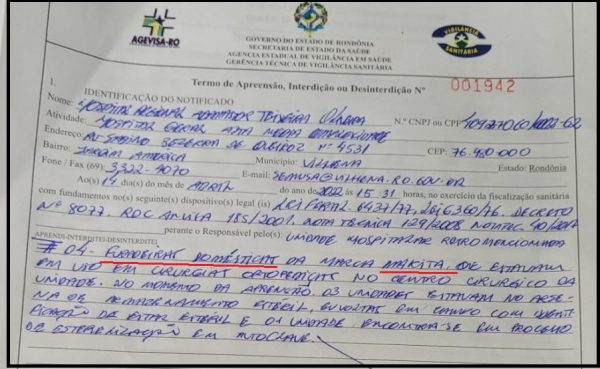 AGEVISA-RO
VIGILÂNCIA SANITÁRIA
GOVERNO DO ESTADO DE RONDÔNIA
SECRETARIA DE ESTADO DA SAÚDE
AGENCIA ESTADUAL DE VIGILÂNCIA EM SAÚDE
GERÊNCIA TÉCNICA DE VIGILÂNCIA SANITÁRIA
Termo de Apreensão, Interdição ou Desinterdição Nº 001942
1.
IDENTIFICAÇÃO DO NOTIFICADO
Nome: HOSPITAL REGIONAL ADAMASTOR TEIXEIRA OLIVEIRA
Atividade: HOSPITAL GERAL ALTA MEDIA COMPLEXIDADE N.º CNPJ ou CPF
Endereço: AV SABINO BEZERRA DE QUEIROZ Nº 4531
Bairro: JARDIM AMERICA Município: VILHENA CEP: 76.980000
Fone / Fax (69): 3322-4070 E-mail: SEMUSA@VILHENA.RO.GOV.BR Estado: Rondônia
Ao(s) 19 dia(s) do mês de ABRIL do ano de 2022 às 15:31 horas, no exercício da fiscalização sanitária
com fundamentos no(s) seguinte(s) dispositivo(s) legal (is) LEI FEDERAL 6437/77, 6360/76. DECRETO
Nº 8077. RDC ANVISA 185/2001. NOTA TECNICA 129/2008 NOTATEC 40/2017
perante o Responsável pelo(s): UNIDADE HOSPITALAR RETROMENCIONADA
APREENDI-INTERDITEI-DESINTERDITEI
# 04 - FURADEIRAS DOMÉSTICAS DA MARCA MAKITA, QUE ESTAVAM
EM USO EM CIRURGIAS ORTOPEDICAS NO CENTRO CIRURGICO DA
UNIDADE. NO MOMENTO DA APREENSÃO, 03 UNIDADES ESTAVAM NO ARSE-
NAL DE ARMAZENAMENTO ESTERIL, ENVOLTAS EM CAMPO COM IDENTI-
FICAÇÃO DE ESTAR ESTERIL E 01 UNIDADE ENCONTRA-SE EM PROCESSO
DE ESTERELIZAÇÃO EM AUTOCLAVE.